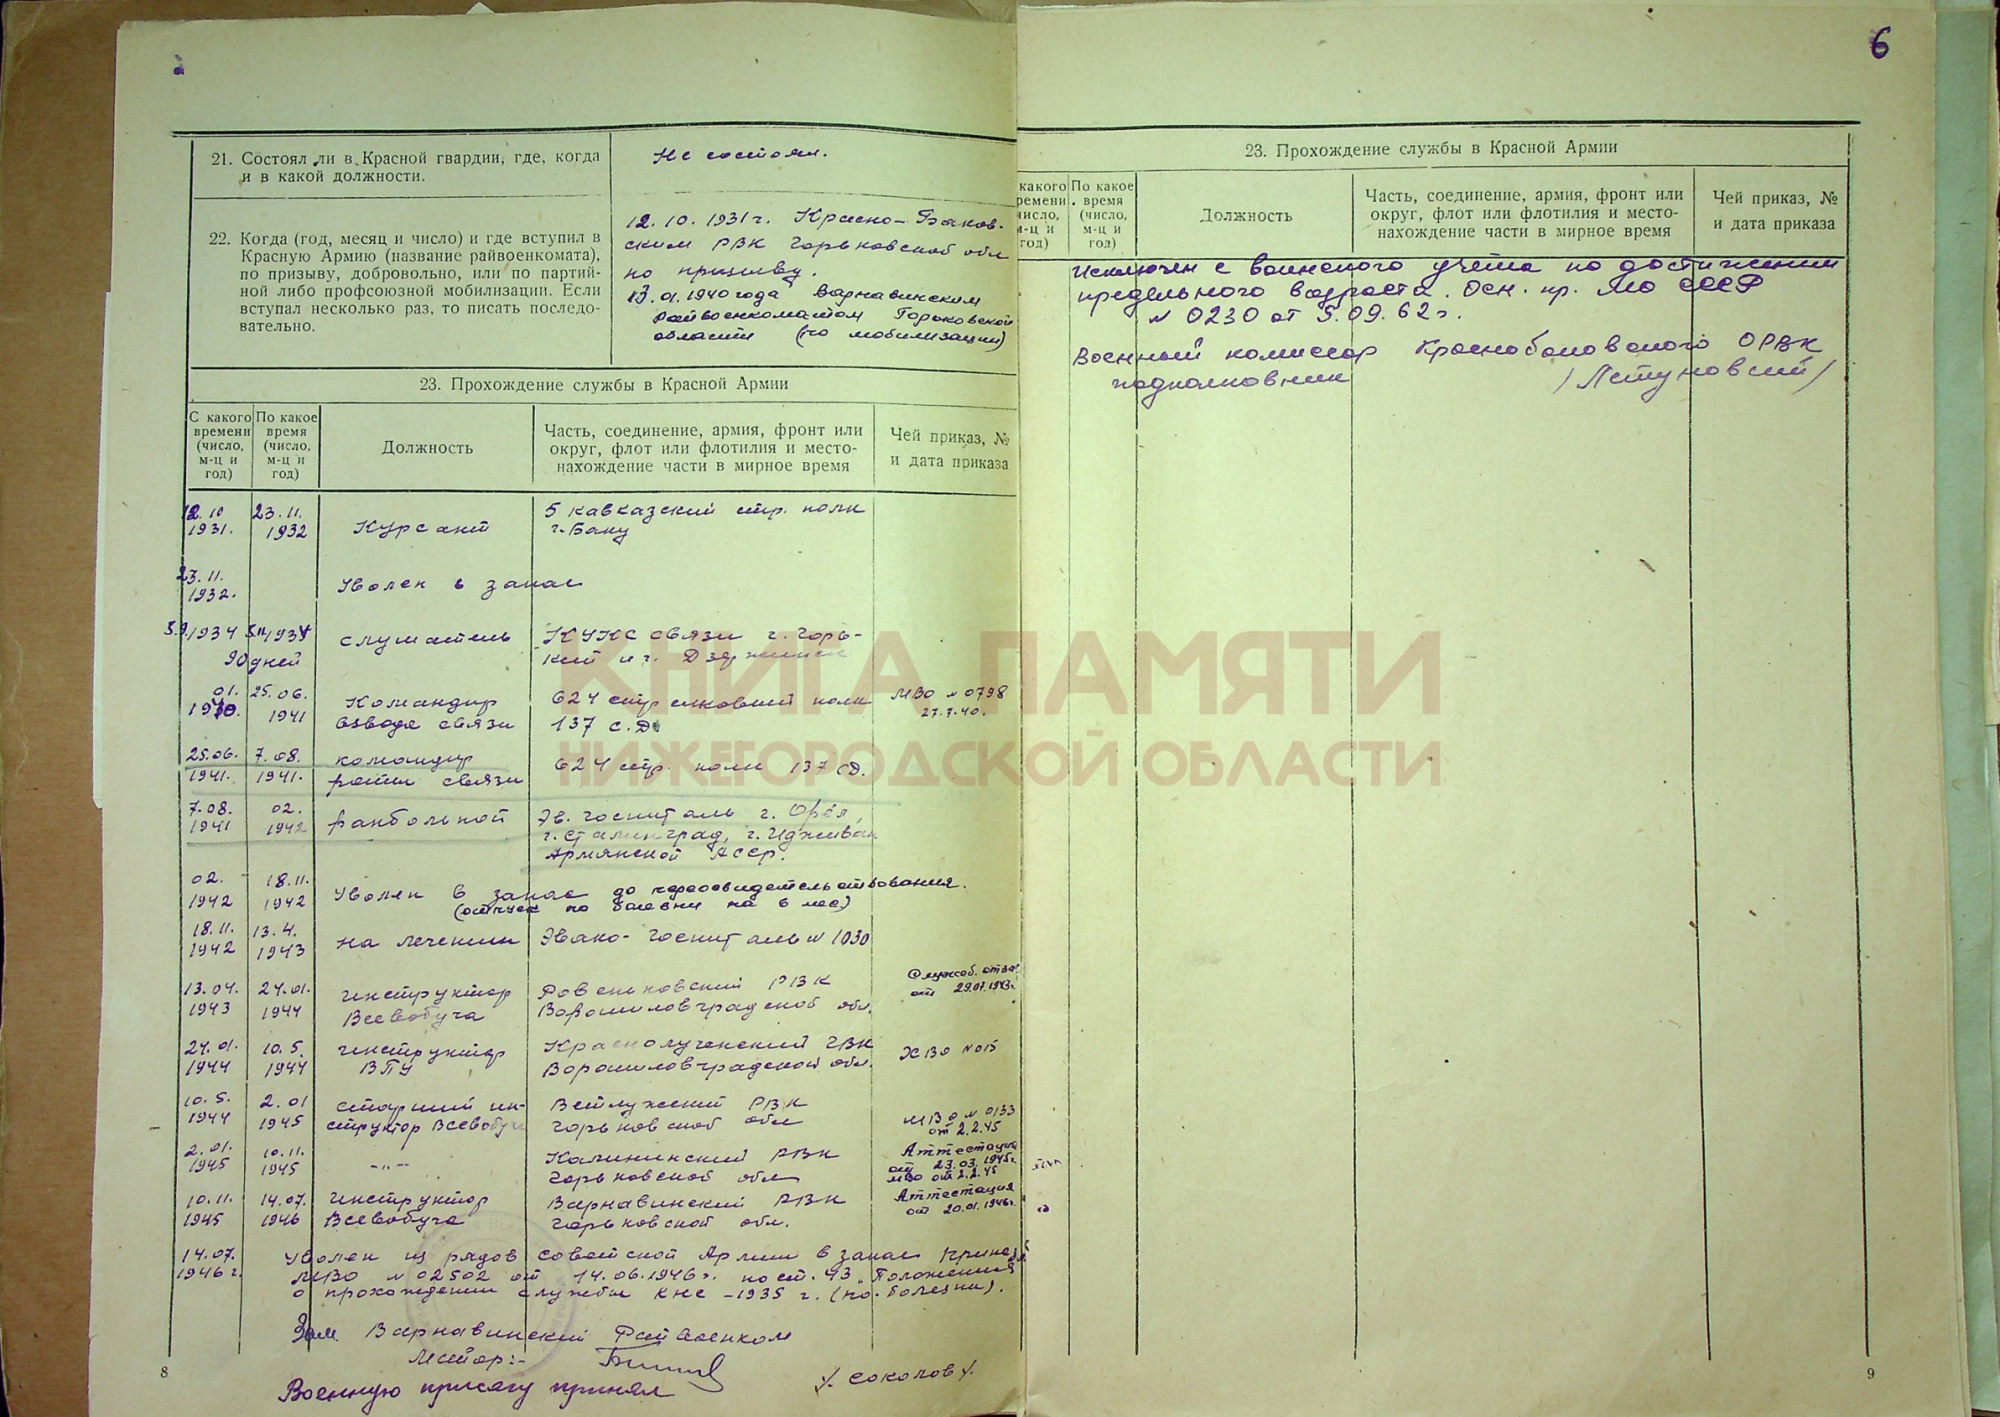 6
21. Состоял ли в Красной гвардии, где, когда
и в какой должности.
Не состоял.
22. Когда (год, месяц и число) и где вступил в
Красную Армию (название райвоенкомата),
по призыву, добровольно, или по партий-
ной либо профсоюзной мобилизации. Если
вступал несколько раз, то писать последо-
вательно.
12.10.1931 г. Красно-Баков-
ским РВК Горьковской обл
по призыву.
13.01.1940 года Варнавинским
Райвоенкоматом Горьковской
области (по мобилизации)
23. Прохождение службы в Красной Армии
С какого времени (число, м-ц и год)
По какое время (число, м-ц и год)
Должность
Часть, соединение, армия, фронт или
округ, флот или флотилия и место-
нахождение части в мирное время
Чей приказ, №
и дата приказа
12.10 23.11. 5 кавказский стр. полк
1931. 1932 Курсант г. Баку
23.11.
1932. Уволен в запас
5.9.1934 5.11.1934 слушатель КУКС связи г. Горь-
90 дней кий и г. Дзержинск
01. 25.06. Командир 624 стрелковый полк МВО № 0798
1940. 1941 взвода связи 137 с.д. 27.7.40.
25.06. 7.08. командир 624 стр. полк 137 сд.
1941. 1941. роты связи
7.08. 02. ранбольной Эв. госпиталь г. Орёл,
1941 1942 г. Сталинград, г. Иджеван
Армянской АССР.
02. 18.11. Уволен в запас до переосвидетельствования.
1942 1942 (отпуск по болезни на 6 мес)
18.11. 13.4. на лечении Эвако-госпиталь № 1030
1942 1943
13.04. 24.01. инструктор Ровеньковский РВК Служеб. отзыв
1943 1944 Всевобуча Ворошиловградской обл. от 29.07.1943 г.
24.01. 10.5. инструктор Краснолученский ГВК ХВО № 015
1944 1944 ВПУ Ворошиловградской обл.
10.5. 2.01 старший ин- Ветлужский РВК МВО № 0133
1944 1945 структор Всевобуча Горьковской обл от 2.2.45
2.01. 10.11. -"- Калининский РВК Аттестация
1945 1945 Горьковской обл от 23.03.1945 г.
МВО от 2.2.45
10.11. 14.07. инструктор Варнавинский РВК Аттестация
1945 1946 Всевобуча Горьковской обл. от 20.01.1946 г.
14.07. Уволен из рядов Советской Армии в запас Приказ
1946 г. МВО № 02502 от 14.06.1946 г. по ст. 43 "Положения
о прохождении службы КНС -1935 г. (по болезни).
Зам. Варнавинский Райвоенком
Майор:-
/. Соколов /.
Военную присягу принял
8
23. Прохождение службы в Красной Армии
какого ремени число, м-ц и год)
По какое время (число, м-ц и год)
Должность
Часть, соединение, армия, фронт или
округ, флот или флотилия и место-
нахождение части в мирное время
Чей приказ, №
и дата приказа
Исключен с воинского учета по достижении
предельного возраста. Осн. пр. МО СССР
№ 0230 от 5.09.62 г.
Военный комиссар Краснобаковского ОРВК
подполковник /Петуховский/
9
КНИГА ПАМЯТИ
НИЖЕГОРОДСКОЙ ОБЛАСТИ